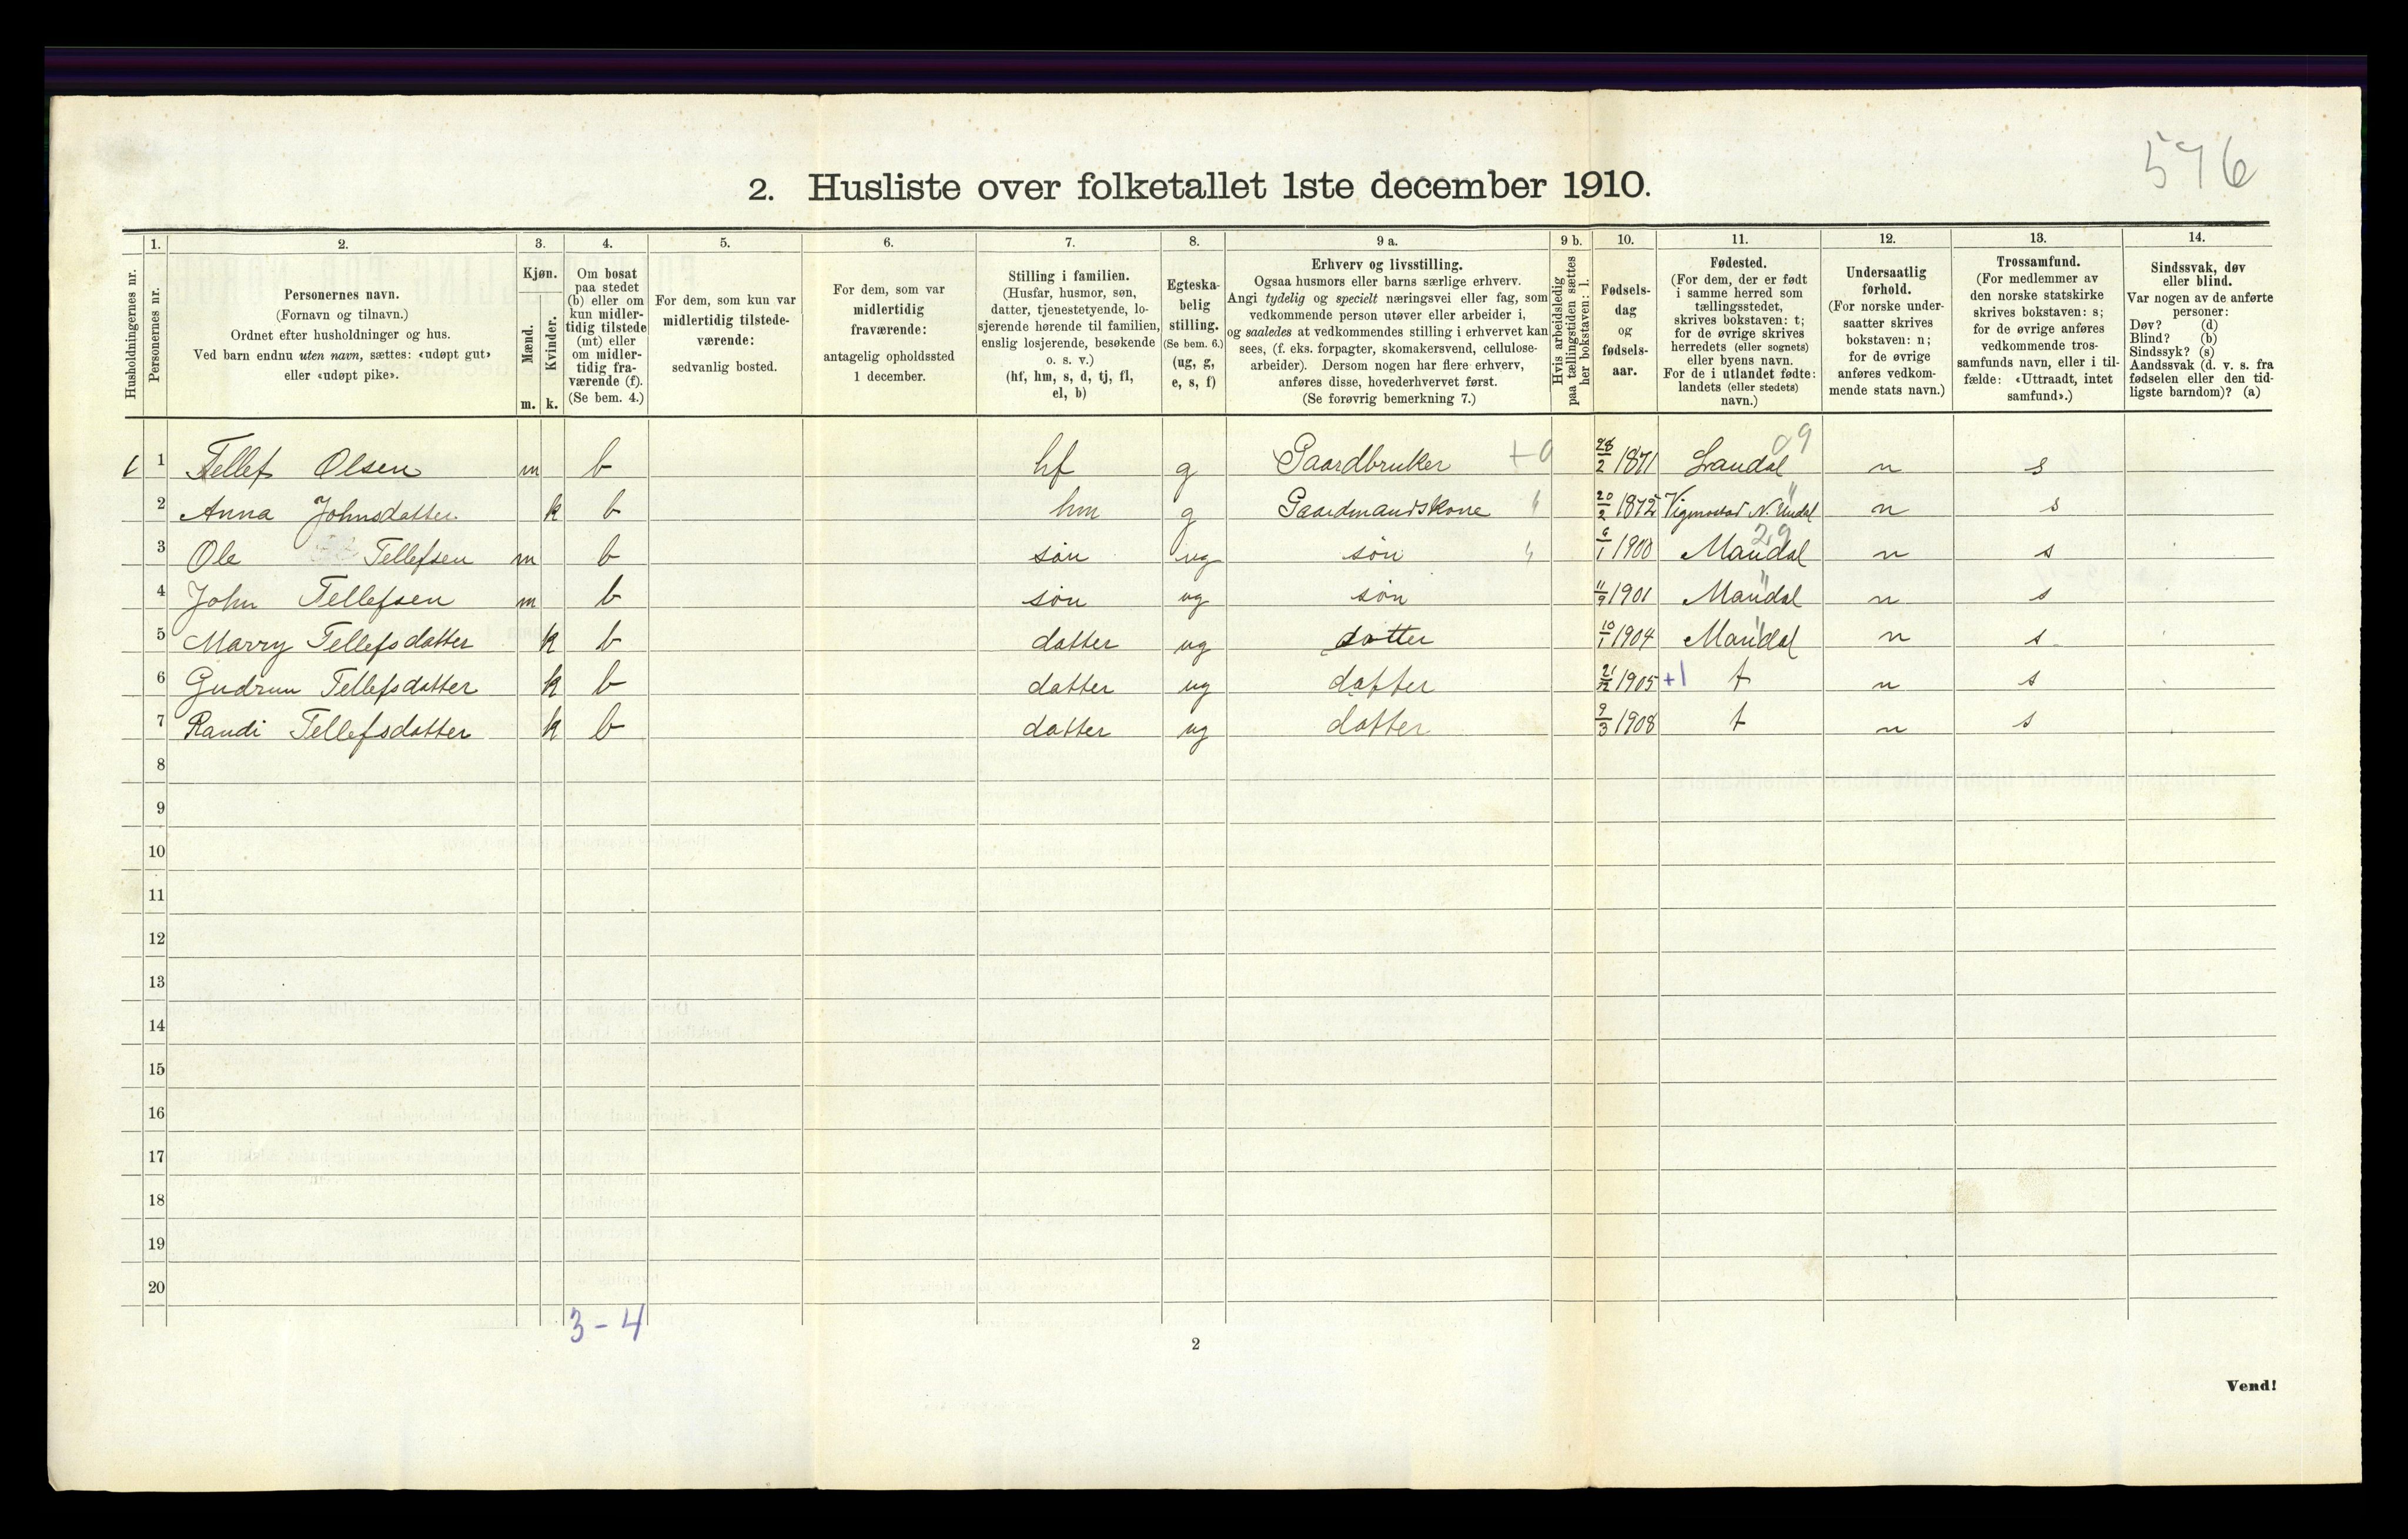 576
2. Husliste over folketallet 1ste december 1910.
Husholdningernes nr. | 1. Personernes nr. | 2. Personernes navn. (Fornavn og tilnavn.) Ordnet efter husholdninger og hus. Ved barn endnu uten navn, sættes: «udøpt gut» eller «udøpt pike». | 3. Kjøn. Mænd. m. Kvinder. k. | 4. Om bosat paa stedet (b) eller om kun midlertidig tilstede (mt) eller om midlertidig fraværende (f). (Se bem. 4.) | 5. For dem, som kun var midlertidig tilstedeværende: sedvanlig bosted. | 6. For dem, som var midlertidig fraværende: antagelig opholdssted 1 december. | 7. Stilling i familien. (Husfar, husmor, søn, datter, tjenestetyende, losjerende hørende til familien, enslig losjerende, besøkende o. s. v.) (hf, hm, s, d, tj, fl, el, b) | 8. Egteskabelig stilling. (Se bem. 6.) (ug, g, e, s, f) | 9 a. Erhverv og livsstilling. Ogsaa husmors eller barns særlige erhverv. Angi tydelig og specielt næringsvei eller fag, som vedkommende person utøver eller arbeider i, og saaledes at vedkommendes stilling i erhvervet kan sees, (f. eks. forpagter, skomakersvend, cellulosearbeider). Dersom nogen har flere erhverv, anføres disse, hovederhvervet først. (Se forøvrig bemerkning 7.) | 9 b. Hvis arbeidsledig paa tællingstiden sættes her bokstaven: l. | 10. Fødselsdag og fødselsaar. | 11. Fødested. (For dem, der er født i samme herred som tællingsstedet, skrives bokstaven: t; for de øvrige skrives herredets (eller sognets) eller byens navn. For de i utlandet fødte: landets (eller stedets) navn.) | 12. Undersaatlig forhold. (For norske undersaatter skrives bokstaven: n; for de øvrige anføres vedkommende stats navn.) | 13. Trossamfund. (For medlemmer av den norske statskirke skrives bokstaven: s; for de øvrige anføres vedkommende trossamfunds navn, eller i tilfælde: «Uttraadt, intet samfund».) | 14. Sindssvak, døv eller blind. Var nogen av de anførte personer: Døv? (d) Blind? (b) Sindssyk? (s) Aandssvak (d. v. s. fra fødselen eller den tidligste barndom)? (a)
1 Tellef Olsen m b hf g Gaardbruker +0 28/2 1871 Laudal 09 n s
2 Anna Johnsdatter k b hm g Gaardmandskone " 20/2 1872 Vigmostad N. Undal " n s
3 Ole Tellefsen m b søn ug søn " 6/1 1900 Mandal 29 n s
4 John Tellefsen m b søn ug søn 11/9 1901 Mandal " n s
5 Marry Tellefsdatter k b datter ug datter 10/1 1904 Mandal " n s
6 Gudrun Tellefsdatter k b datter ug datter 21/12 1905 +1 t n s
7 Randi Tellefsdatter k b datter ug datter 9/3 1908 t n s
8
9
10
11
12
13
14
15
16
17
18
19
20
3-4
2
Vend!